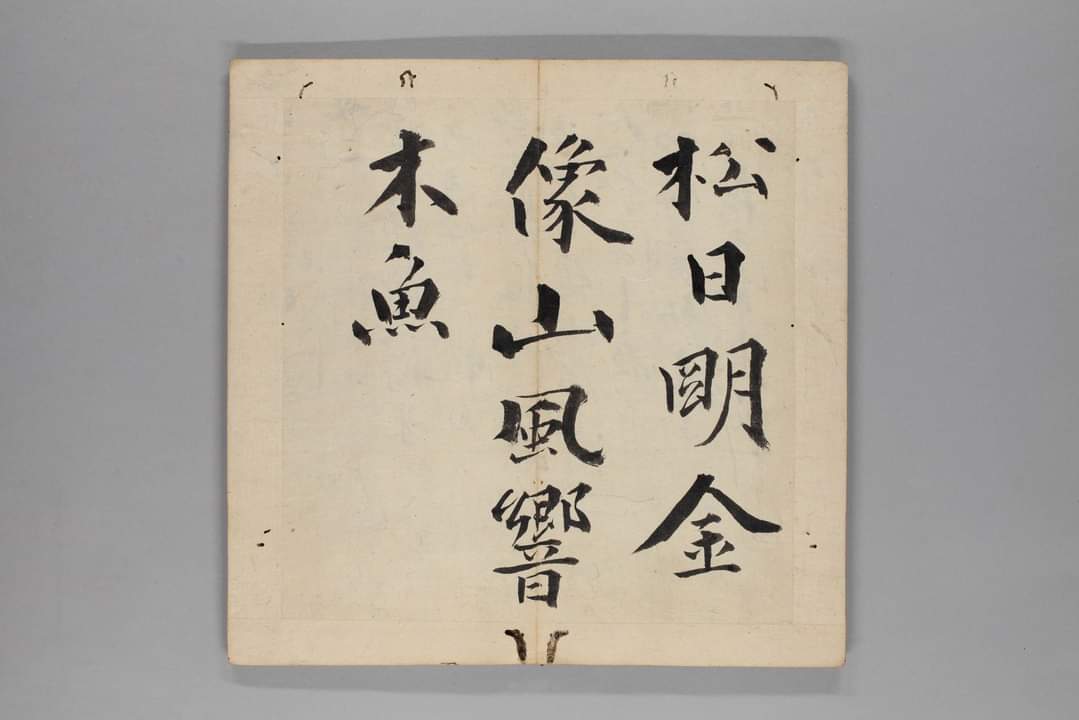 松日明金
像山風響
木魚